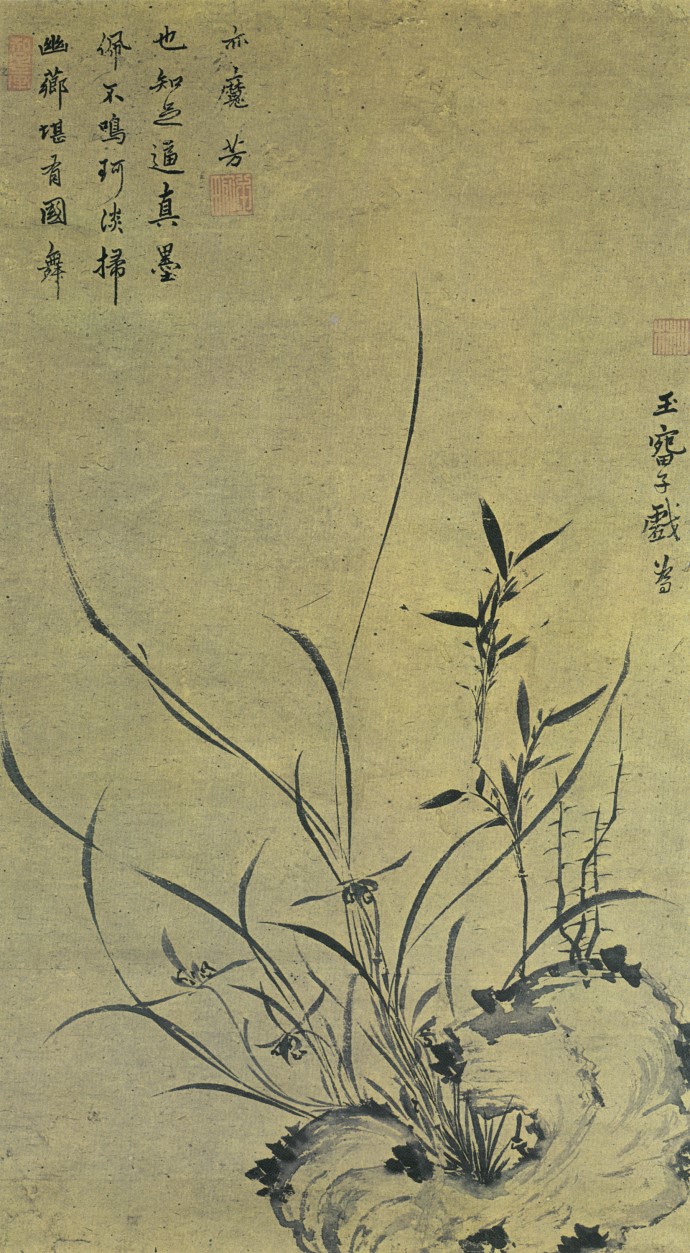 幽薌堪有國舞
佩不鳴珂淡掃
也知足逼真墨
亦魔芳
玉畹子戲為